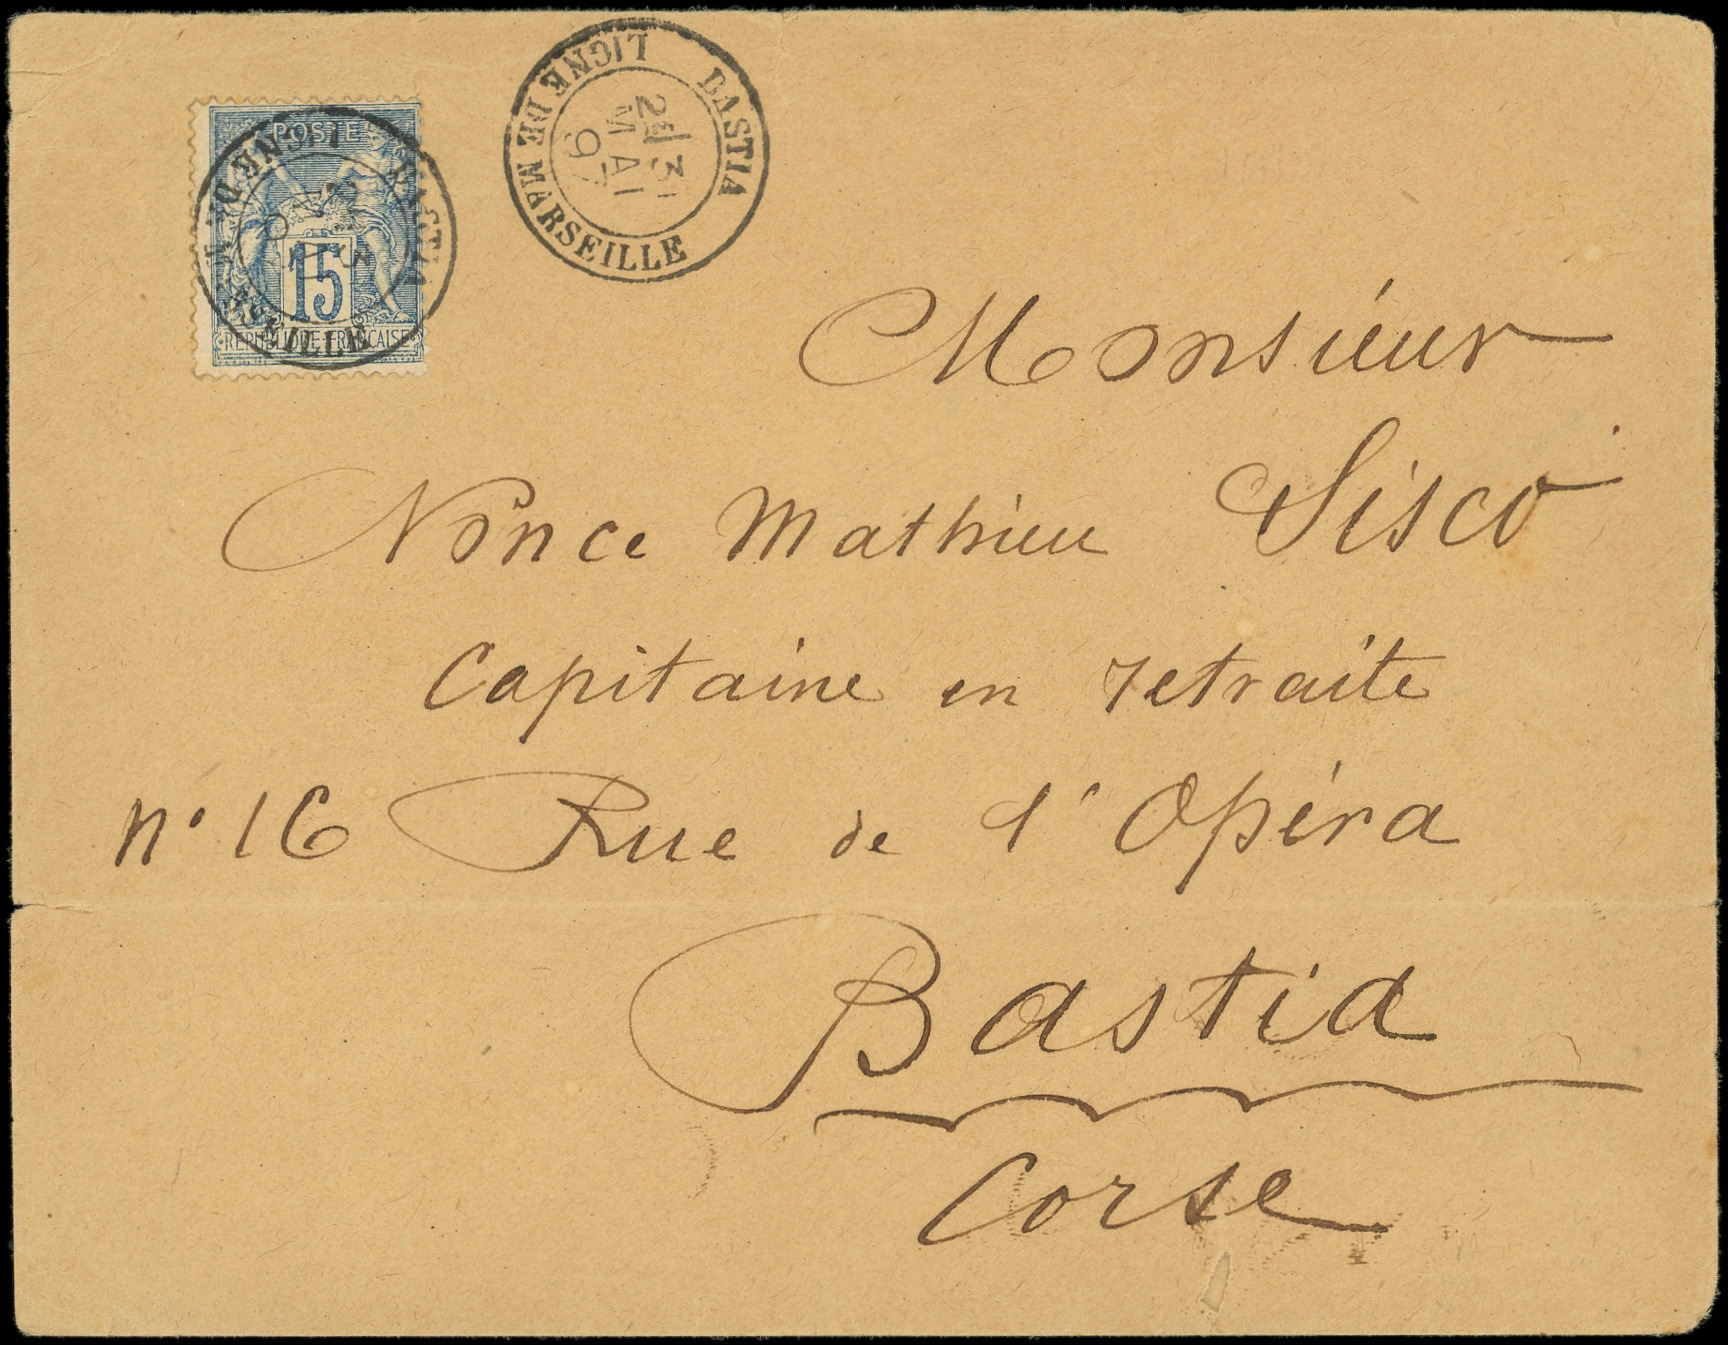 POSTE
15
REPUBLIQUE FRANÇAISE
LIGNE DE MARSEILLE
BASTIA
LIGNE DE MARSEILLE
BASTIA
MAI
Monsieur
Nonce Mathieu Sisco
Capitaine en retraite
n° 16 Rue de l'Opéra
Bastia
Corse